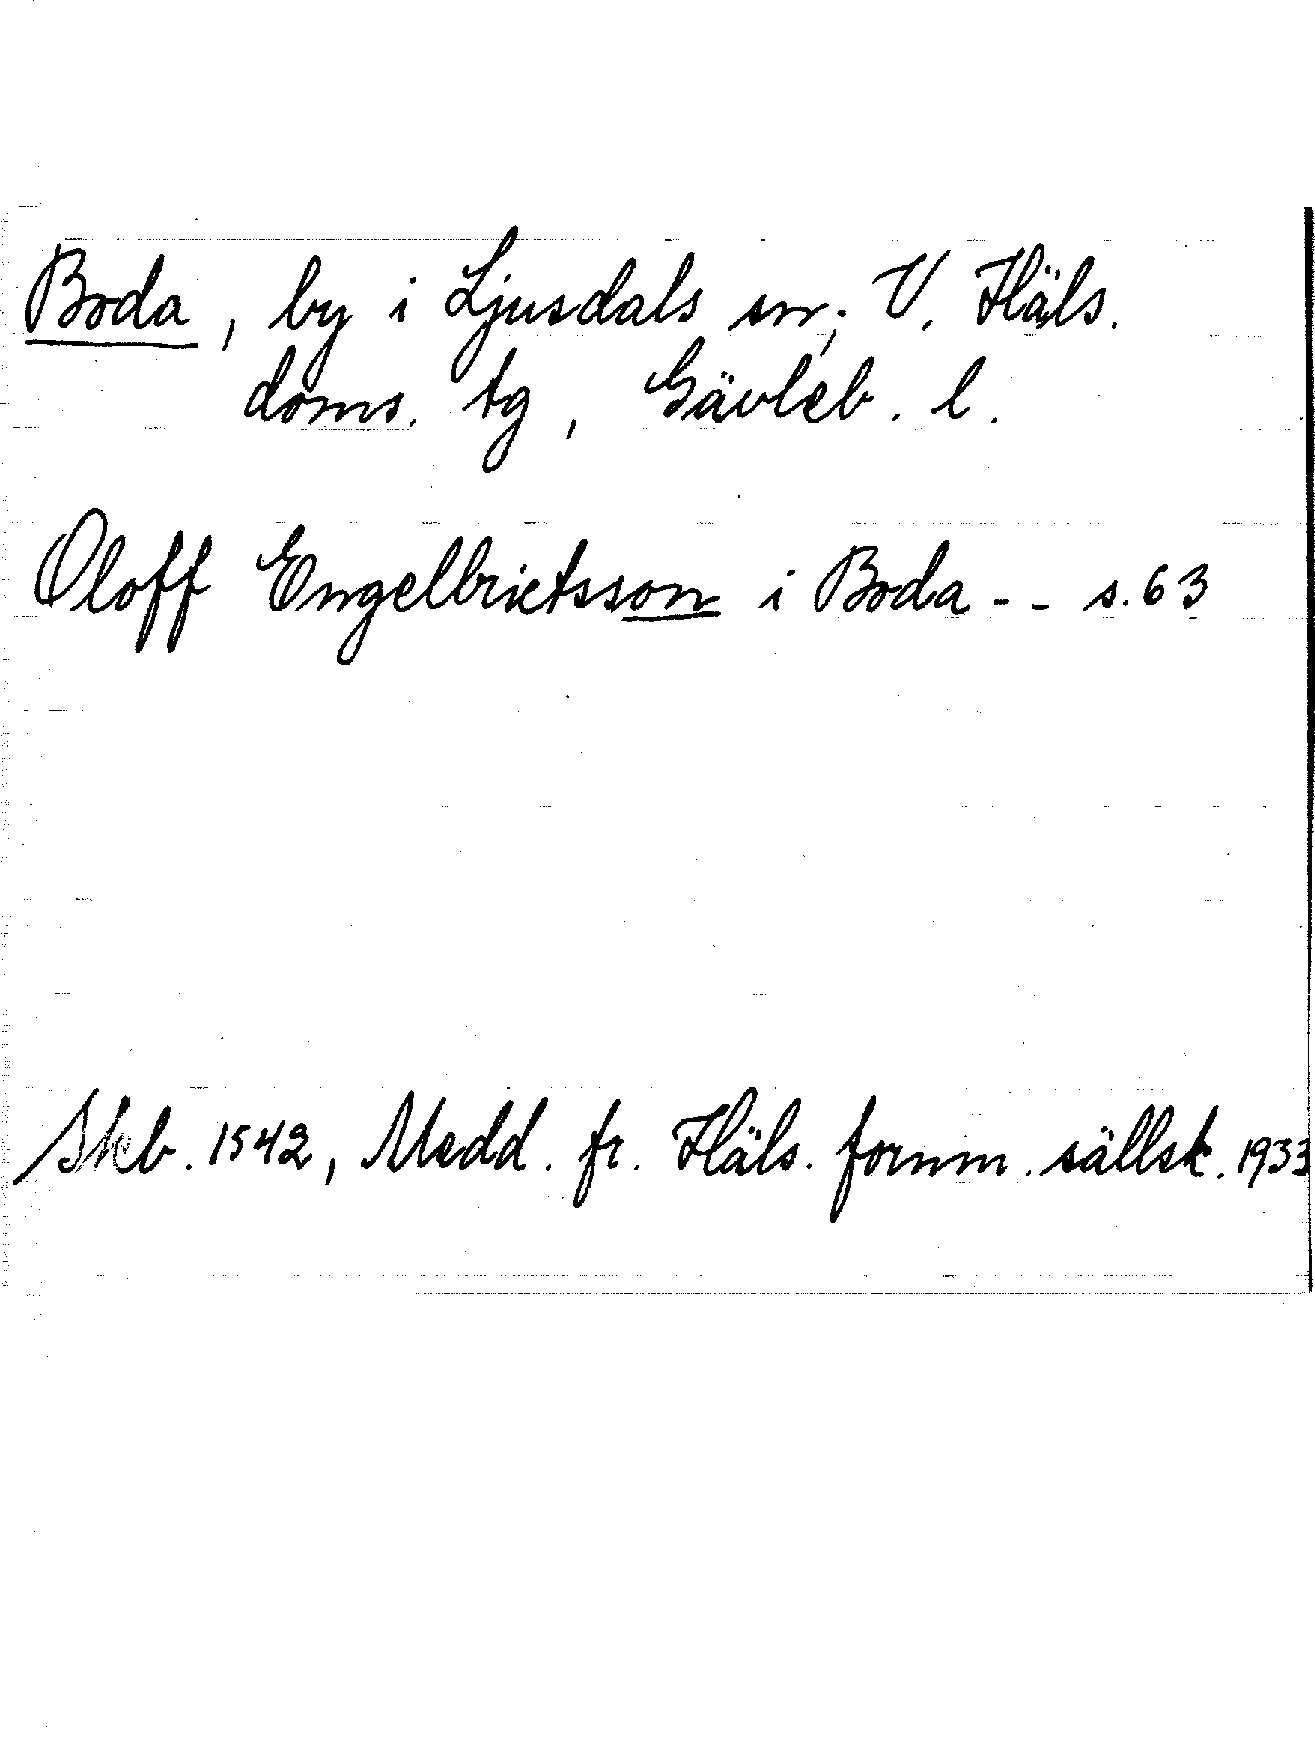 Boda, by i Ljusdals sn, V. Häls.
doms. tg, Gävleb. l.
Oloff Engelbrictsson i Boda - - s. 63
Skb. 1542, Medd. fr. Häls. fornm. sällsk. 1933